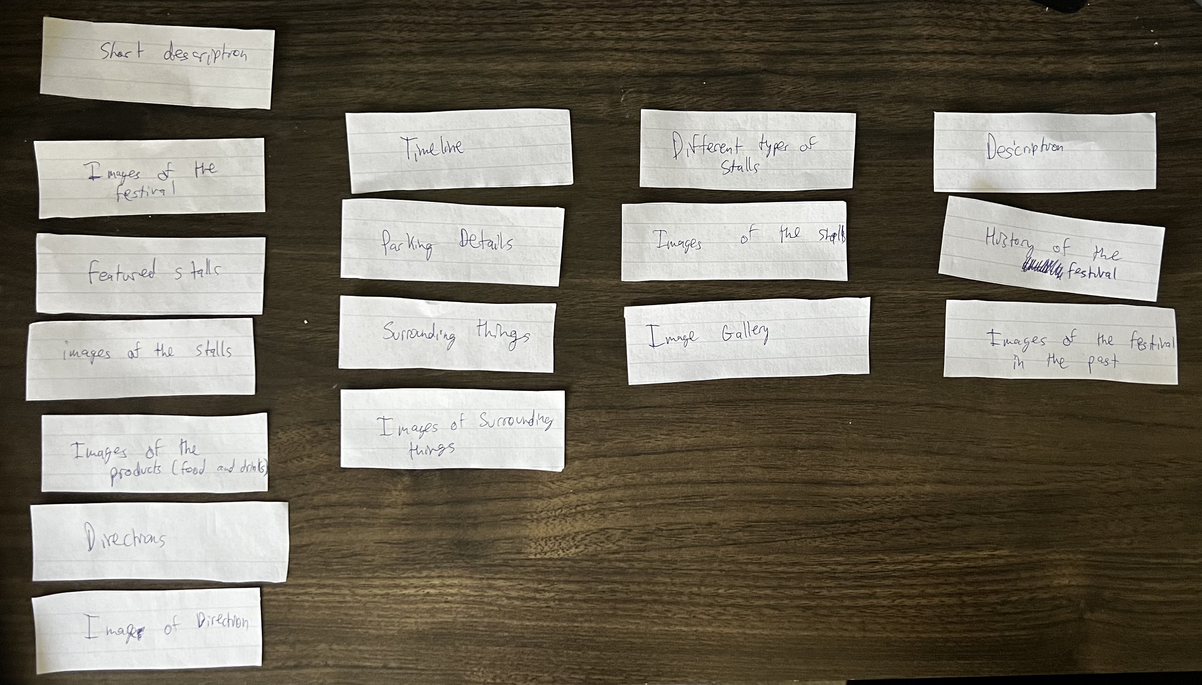 Short description
Images of the
festival
featured stalls
images of the stalls
Images of the
products (food and drinks)
Directions
Image of Direction
Timeline
Parking Details
Surrounding things
Images of Surrounding
things
Different types of
Stalls
Images of the stalls
Image Gallery
Description
History of the
festival
Images of the festival
in the past